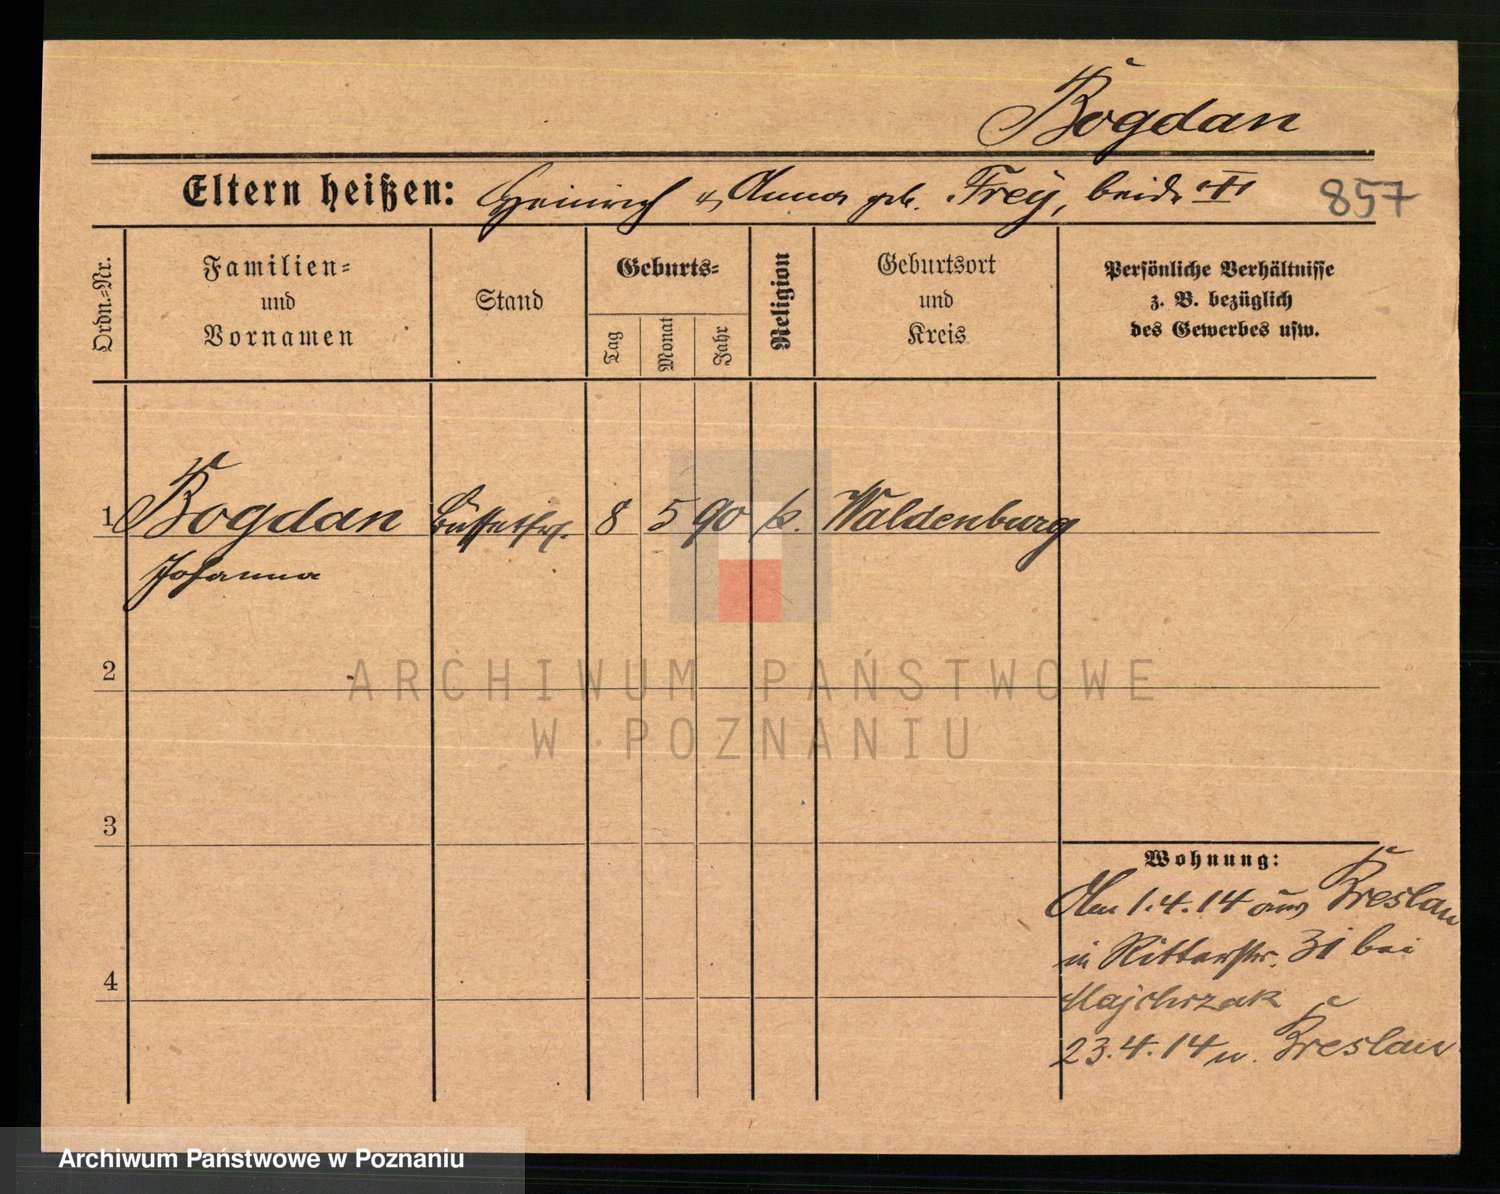 Bogdan
Eltern heißen: Heinrich u. Anna geb. Frey, beide ††
857
Ordn.-Nr.
Familien-
und
Vornamen
Stand
Geburts-
Tag
Monat
Jahr
Religion
Geburtsort
und
Kreis
Persönliche Verhältnisse
z. B. bezüglich
des Gewerbes usw.
1 Bogdan 8 5 90 k. Waldenburg
Johanna
2
ARCHIWUM PAŃSTWOWE
W POZNANIU
3
Wohnung:
Am 1.4.14 aus Breslau
in Ritterstr. 31 bei
Majchrzak
4
23.4.14 n. Breslau
Archiwum Państwowe w Poznaniu